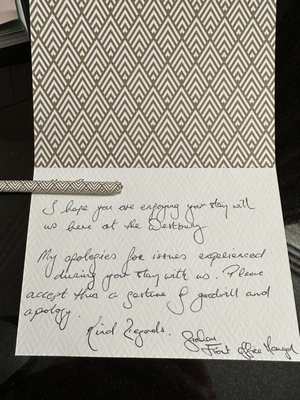 I hope you are enjoying your stay with
us here at the Westbury
My apologies for issues experienced
during your stay with us. Please
accept this a gesture of goodwill and
apology.
Kind Regards.
Front Office Manager